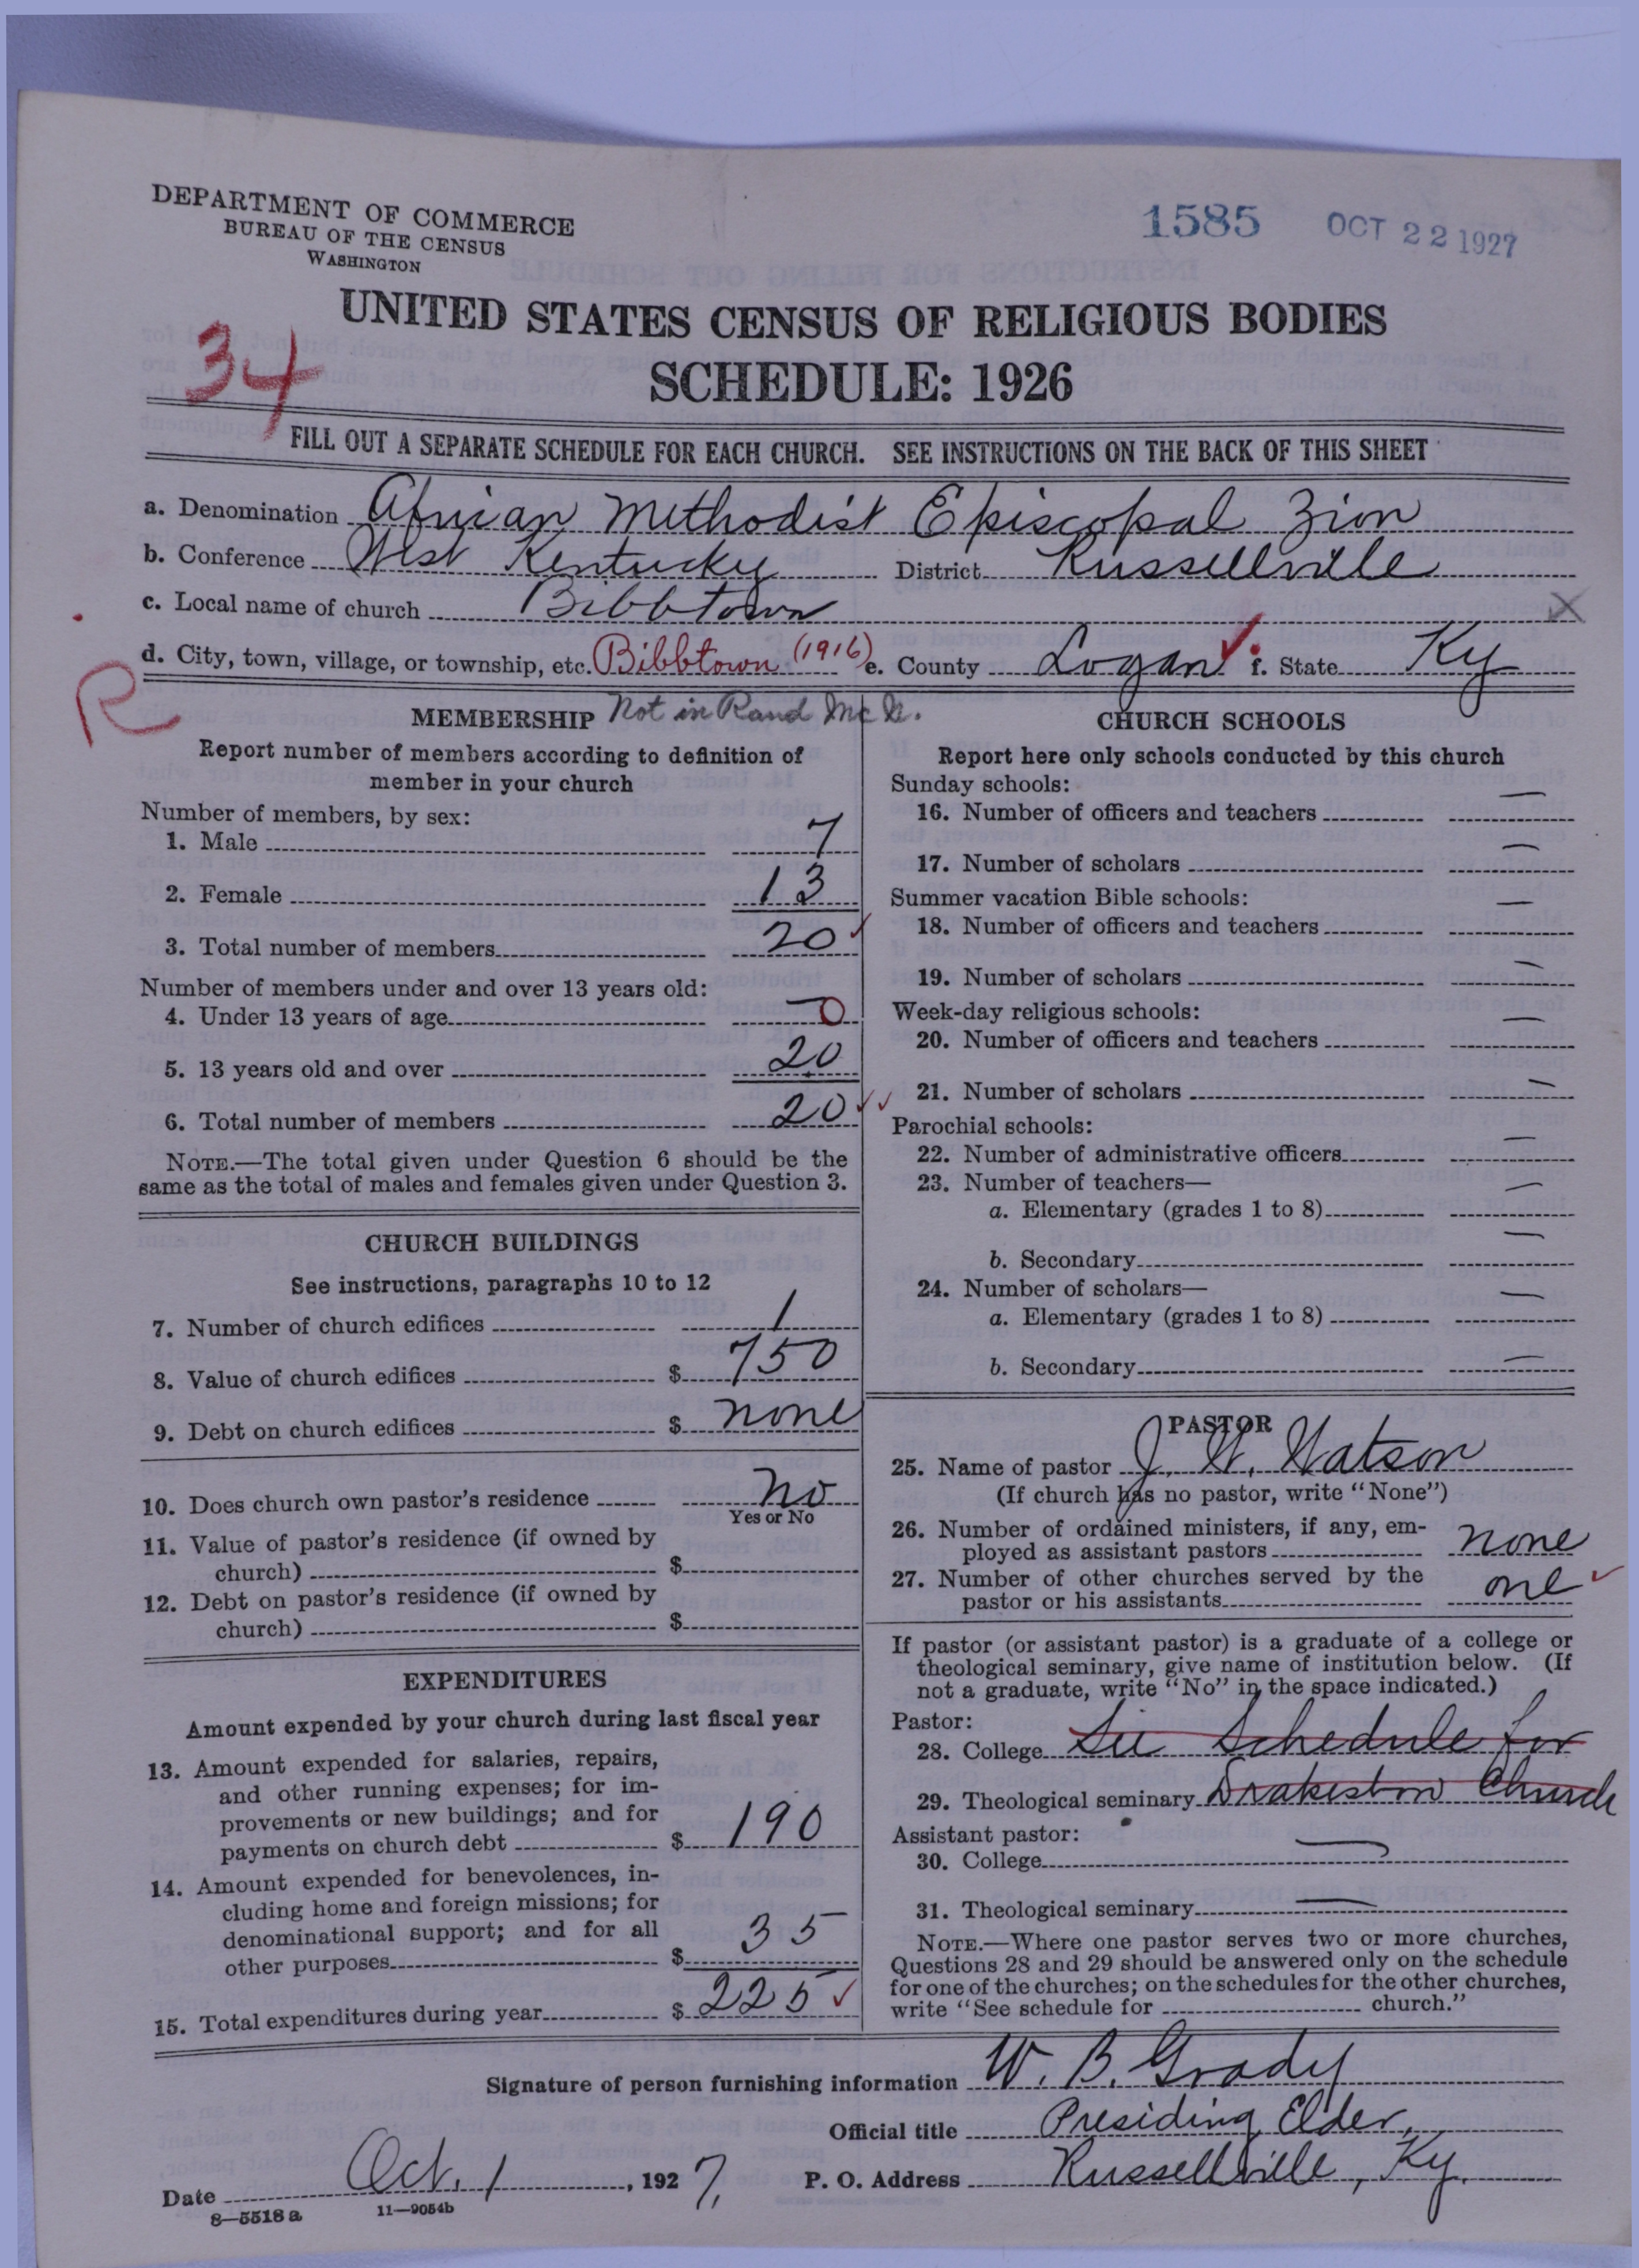 DEPARTMENT OF COMMERCE
BUREAU OF THE CENSUS
WASHINGTON
1585 OCT 22 1927
UNITED STATES CENSUS OF RELIGIOUS BODIES
34
SCHEDULE: 1926
FILL OUT A SEPARATE SCHEDULE FOR EACH CHURCH. SEE INSTRUCTIONS ON THE BACK OF THIS SHEET
a. Denomination African Methodist Episcopal Zion
b. Conference West Kentucky District Russellville
c. Local name of church Bibbtown X
d. City, town, village, or township, etc. Bibbtown (1916) e. County Logan ✓ f. State Ky
R
MEMBERSHIP Not in Rand McN.
Report number of members according to definition of
member in your church
Number of members, by sex:
1. Male 7
2. Female 13
3. Total number of members 20 ✓
Number of members under and over 13 years old:
4. Under 13 years of age 0
5. 13 years old and over 20
6. Total number of members 20 ✓✓
NOTE.—The total given under Question 6 should be the
same as the total of males and females given under Question 3.
CHURCH BUILDINGS
See instructions, paragraphs 10 to 12
7. Number of church edifices 1
8. Value of church edifices $ 750
9. Debt on church edifices $ none
10. Does church own pastor's residence No
Yes or No
11. Value of pastor's residence (if owned by
church) $
12. Debt on pastor's residence (if owned by
church) $
EXPENDITURES
Amount expended by your church during last fiscal year
13. Amount expended for salaries, repairs,
and other running expenses; for im-
provements or new buildings; and for
payments on church debt $ 190
14. Amount expended for benevolences, in-
cluding home and foreign missions; for
denominational support; and for all
other purposes $ 35
15. Total expenditures during year $ 225 ✓
CHURCH SCHOOLS
Report here only schools conducted by this church
Sunday schools:
16. Number of officers and teachers —
17. Number of scholars —
Summer vacation Bible schools:
18. Number of officers and teachers —
19. Number of scholars —
Week-day religious schools:
20. Number of officers and teachers —
21. Number of scholars —
Parochial schools:
22. Number of administrative officers —
23. Number of teachers—
a. Elementary (grades 1 to 8) —
b. Secondary —
24. Number of scholars—
a. Elementary (grades 1 to 8) —
b. Secondary —
PASTOR
25. Name of pastor J. W. Watson
(If church has no pastor, write "None")
26. Number of ordained ministers, if any, em-
ployed as assistant pastors none
27. Number of other churches served by the
pastor or his assistants one ✓
If pastor (or assistant pastor) is a graduate of a college or
theological seminary, give name of institution below. (If
not a graduate, write "No" in the space indicated.)
Pastor:
28. College See Schedule for
29. Theological seminary Drakestown Church
Assistant pastor:
30. College —
31. Theological seminary —
NOTE.—Where one pastor serves two or more churches,
Questions 28 and 29 should be answered only on the schedule
for one of the churches; on the schedules for the other churches,
write "See schedule for church."
Signature of person furnishing information W. B. Grady
Official title Presiding Elder,
Date Oct. 1, 1927, P. O. Address Russellville, Ky.
8—5518 a 11—9054b